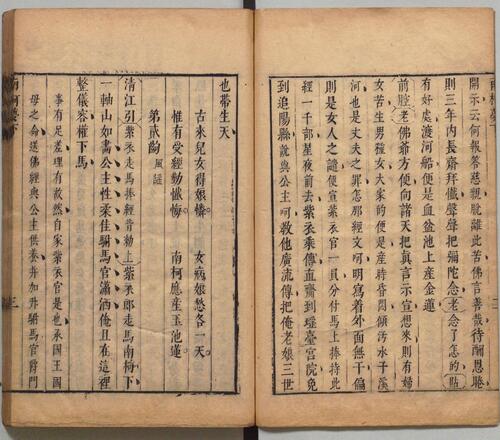 開示云何報答慈親脫離此苦佛言善哉待酬恩
則三年內長齋拜懺聲聲把彌陀念老念了怎的點
有好處渡河船便是血盆池上產金蓮
前腔老佛爺方便向諸天把真言示宣想來則有婦
女苦生男種女大家的便是產時昏悶傾污水于溪
河也是丈夫之罪怎那經文呵明寫着外面無干偏
則是女人之譴便宣紫衣官一員分付馬上捧持此
經一千部星夜前去紫衣乘傳血齋到瑶臺宮院免
到追陽縣說與公主呵教他廣流傳把俺老娘三世
也帶生天
古來兒女得娘憐 女病娘愁各一天
惟有受經勤懺悔 南柯應產玉池蓮
第貳齣 風謠
清江引紫衣走馬捧經背勅上紫衣郎走馬南柯下
一軸山如畫公主性柔佳駙馬官瀟洒俺且在這裡
整儀容權下馬
事有足差理有故然自家紫衣官是也承国王国
母之命送佛經與公主供養并加升駙馬官爵門
三